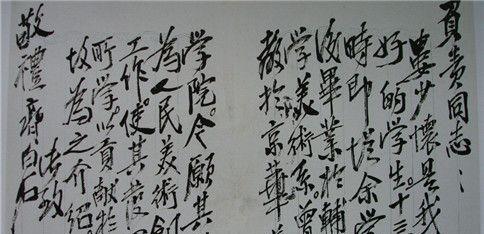 負責同志：
婁少懷是我
好的学生。十三
時即從余学
後畢業於輔
学美術系。曾
教於京華美
学院。今願其
為人民美術創
工作。使其發
所学以貢献於
故為之介紹
此致
敬禮 齊白石